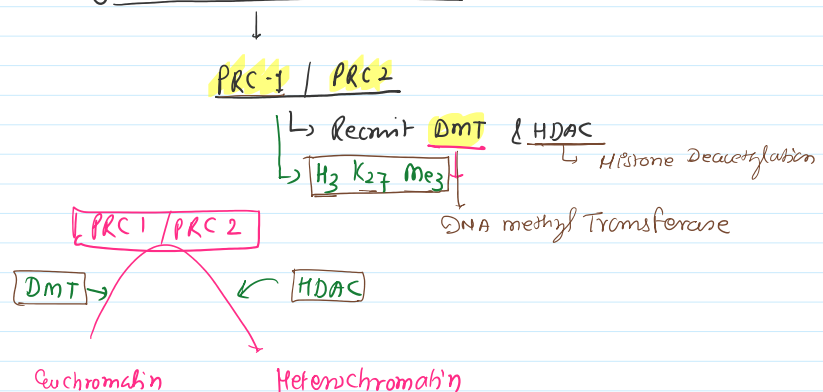 PRC-1 / PRC2
↳ Recruit DMT & HDAC
↳ Histone Deacetylation
↳ H3 K27 Me3
DNA methyl Transferase
PRC1 / PRC 2
DMT → ← HDAC
Euchromatin Heterochromatin